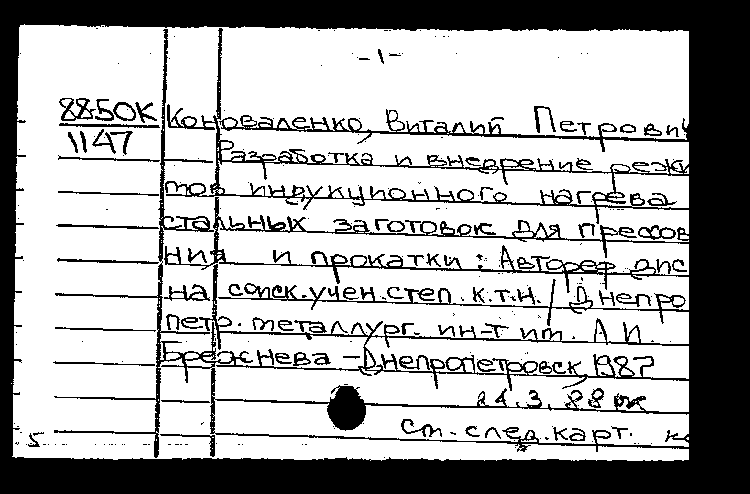 -1-
88-5OK Коноваленко, Виталий Петрович
1147
Разработка и внедрение режи
мов индукционного нагрева
стальных заготовок для прессов
ния и прокатки: Автореф. дис
на соиск. учен. степ. к.т.н. / Днепро
петр. металлург. ин-т им. Л И.
Брежнева - Днепропетровск, 1987
21.3.88 ок
5 см. след. карт.